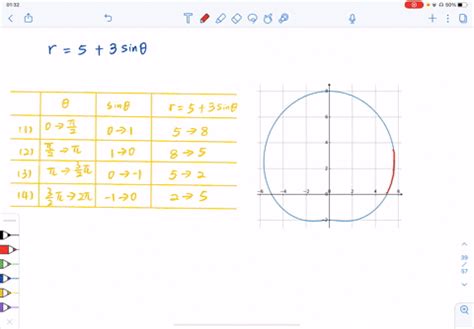 01:32
60%
r = 5 + 3 sinθ
θ sinθ r = 5 + 3 sinθ
(1) 0 → π/2 0 → 1 5 → 8
(2) π/2 → π 1 → 0 8 → 5
(3) π → 3/2 π 0 → -1 5 → 2
(4) 3/2 π → 2π -1 → 0 2 → 5
8
6
4
2
0
-2
-6 -4 -2 0 2 4 6
39
/
57